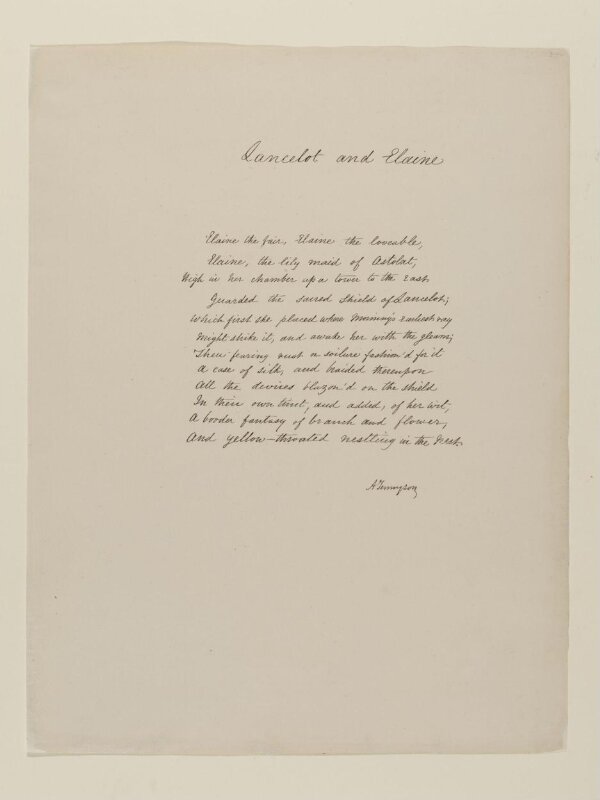 Lancelot and Elaine
Elaine the fair, Elaine the loveable,
Elaine, the lily maid of Astolat,
High in her chamber up a tower to the East
Guarded the sacred shield of Lancelot;
Which first she placed where Morning's Earliest ray
Might strike it, and awake her with the gleam;
Then fearing rust or soilure fashion'd for it
A case of silk, and braided thereupon
All the devices blazon'd on the shield
In their own tinct, and added, of her wit,
A border fantasy of branch and flower,
And yellow-throated nestling in the nest.
A Tennyson